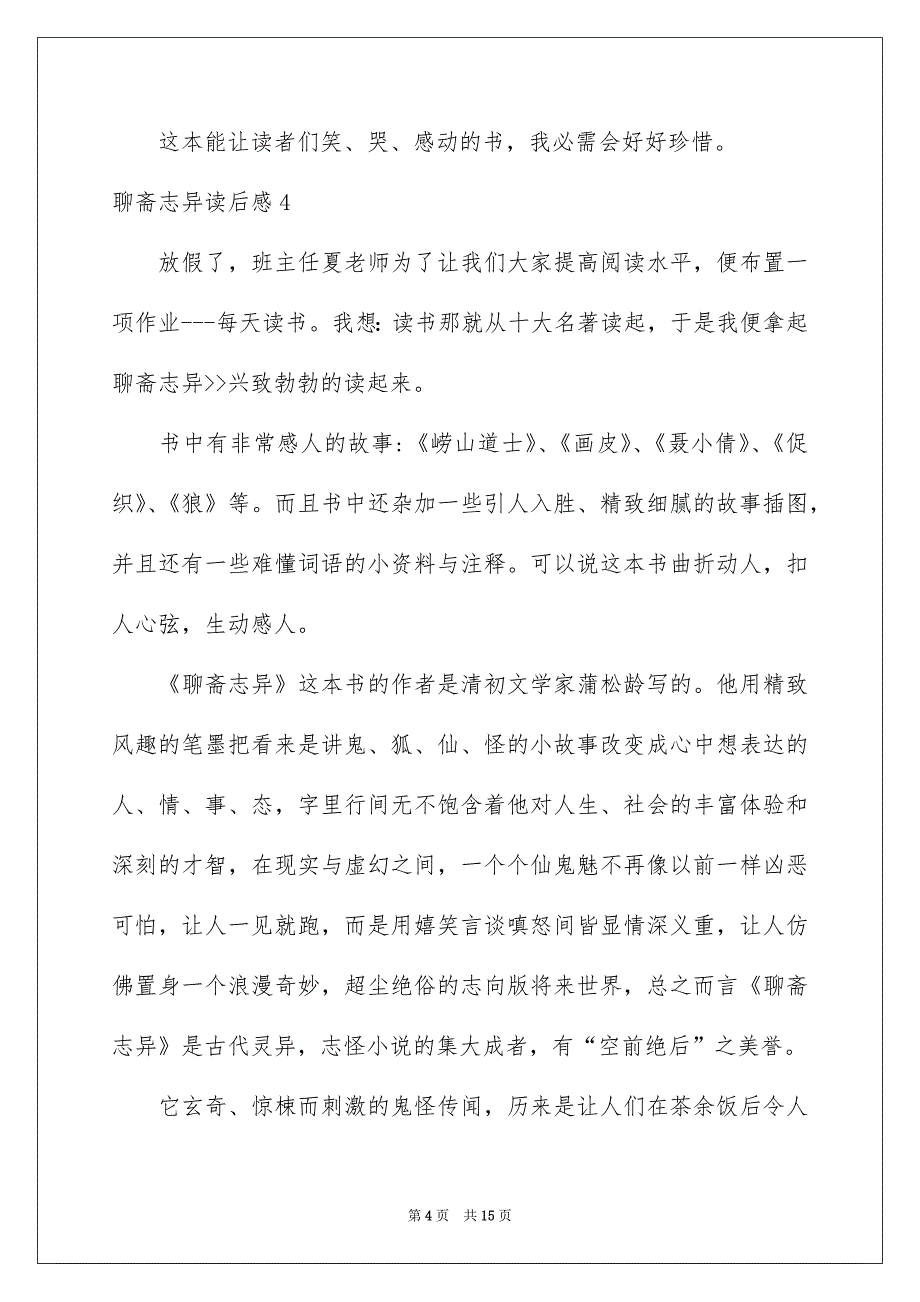 这本能让读者们笑、哭、感动的书，我必需会好好珍惜。
聊斋志异读后感 4
放假了，班主任夏老师为了让我们大家提高阅读水平，便布置一
项作业---每天读书。我想：读书那就从十大名著读起，于是我便拿起
聊斋志异>>兴致勃勃的读起来。
书中有非常感人的故事：《崂山道士》、《画皮》、《聂小倩》、《促
织》、《狼》等。而且书中还杂加一些引人入胜、精致细腻的故事插图，
并且还有一些难懂词语的小资料与注释。可以说这本书曲折动人，扣
人心弦，生动感人。
《聊斋志异》这本书的作者是清初文学家蒲松龄写的。他用精致
风趣的笔墨把看来是讲鬼、狐、仙、怪的小故事改变成心中想表达的
人、情、事、态，字里行间无不饱含着他对人生、社会的丰富体验和
深刻的才智，在现实与虚幻之间，一个个仙鬼魅不再像以前一样凶恶
可怕，让人一见就跑，而是用嬉笑言谈嗔怒间皆显情深义重，让人仿
佛置身一个浪漫奇妙，超尘绝俗的志向版将来世界，总之而言《聊斋
志异》是古代灵异，志怪小说的集大成者，有“空前绝后”之美誉。
它玄奇、惊悚而刺激的鬼怪传闻，历来是让人们在茶余饭后令人
第 4 页 共 15 页